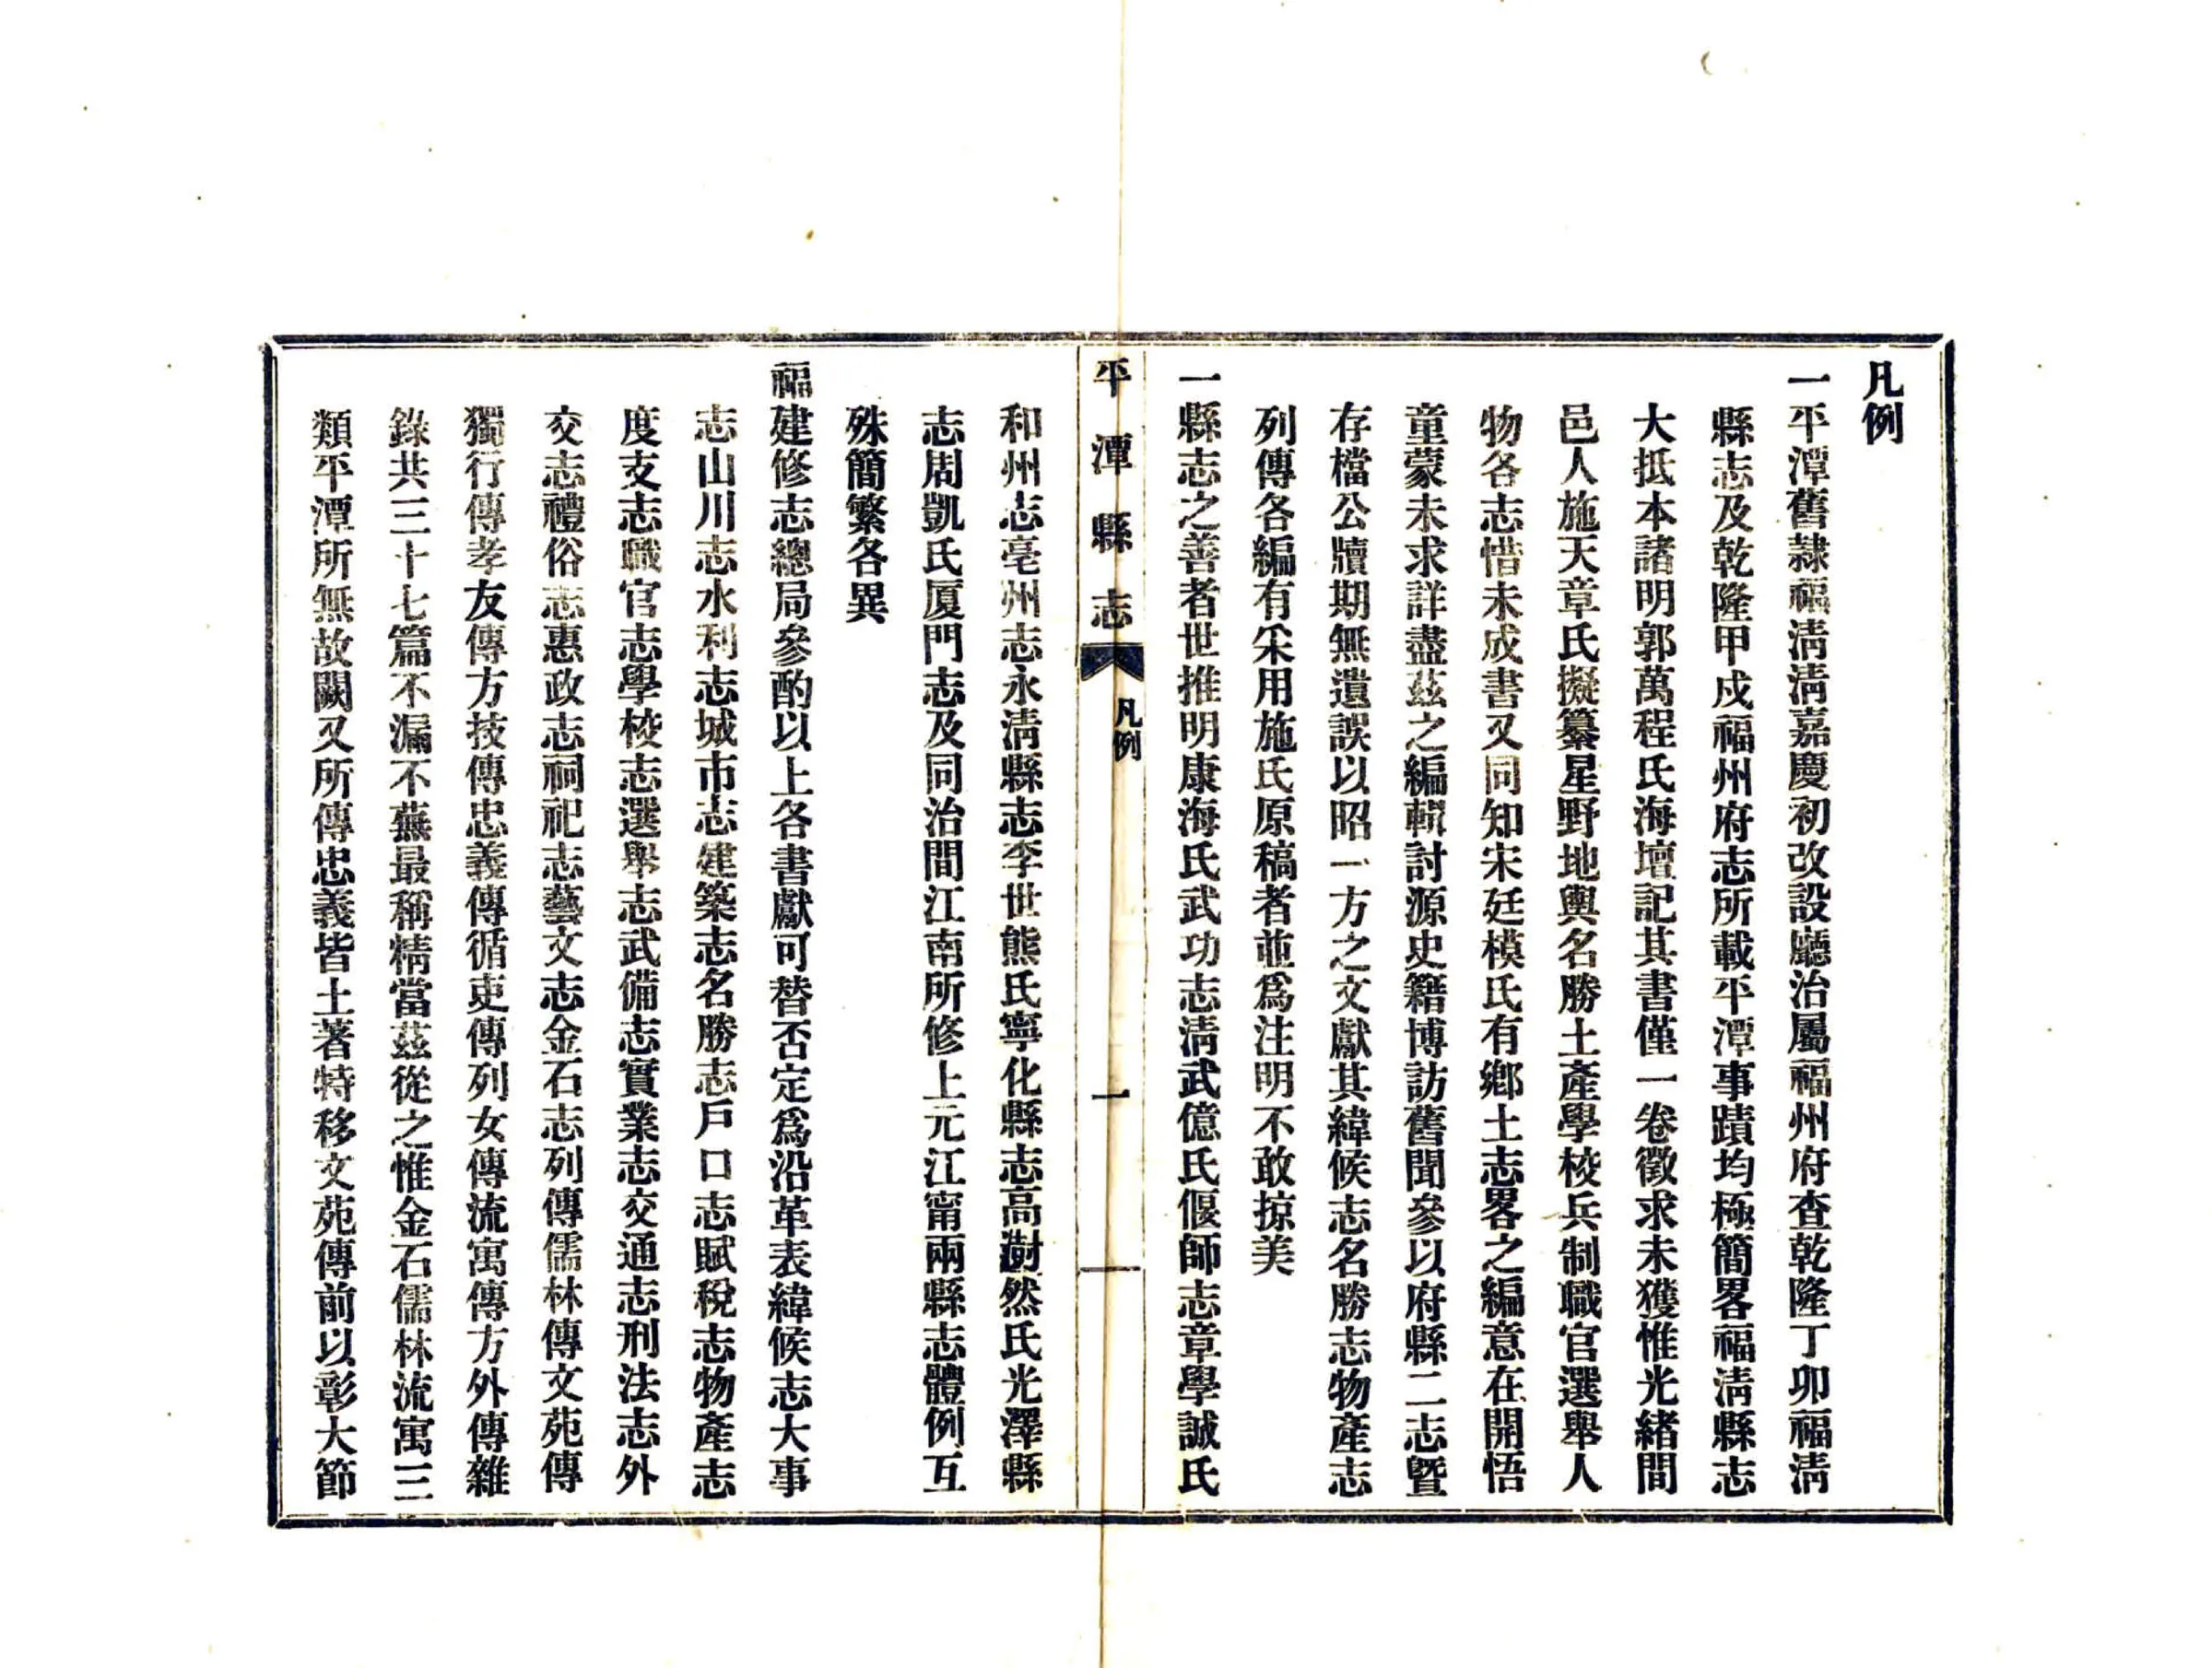 凡例
一平潭舊隸福清清嘉慶初改設廳治屬福州府查乾隆丁卯福清
縣志及乾隆甲戍福州府志所載平潭事蹟均極簡畧福清縣志
大抵本諸明郭萬程氏海壇記其書僅一卷徵求未獲惟光緒間
邑人施天章氏擬纂星野地輿名勝土產學校兵制職官選舉人
物各志惜未成書又同知宋廷模氏有鄉土志畧之編意在開悟
童蒙未求詳盡茲之編輯討源史籍博訪舊聞參以府縣二志暨
存檔公牘期無遺誤以昭一方之文獻其緯候志名勝志物產志
列傳各編有采用施氏原稿者並爲注明不敢掠美
一縣志之善者世推明康海氏武功志清武億氏偃師志章學誠氏
平潭縣志 凡例 一
和州志亳州志永清縣志李世熊氏寧化縣志高澍然氏光澤縣
志周凱氏厦門志及同治間江南所修上元江甯兩縣志體例互
殊簡繁各異
福建修志總局參酌以上各書獻可替否定爲沿革表緯候志大事
志山川志水利志城市志建築志名勝志戶口志賦稅志物產志
度支志職官志學校志選舉志武備志實業志交通志刑法志外
交志禮俗志惠政志祠祀志藝文志金石志列傳儒林傳文苑傳
獨行傳孝友傳方技傳忠義傳循吏傳列女傳流寓傳方外傳雜
錄共三十七篇不漏不蕪最稱精當茲從之惟金石儒林流寓三
類平潭所無故闕又所傳忠義皆土著特移文苑傳前以彰大節